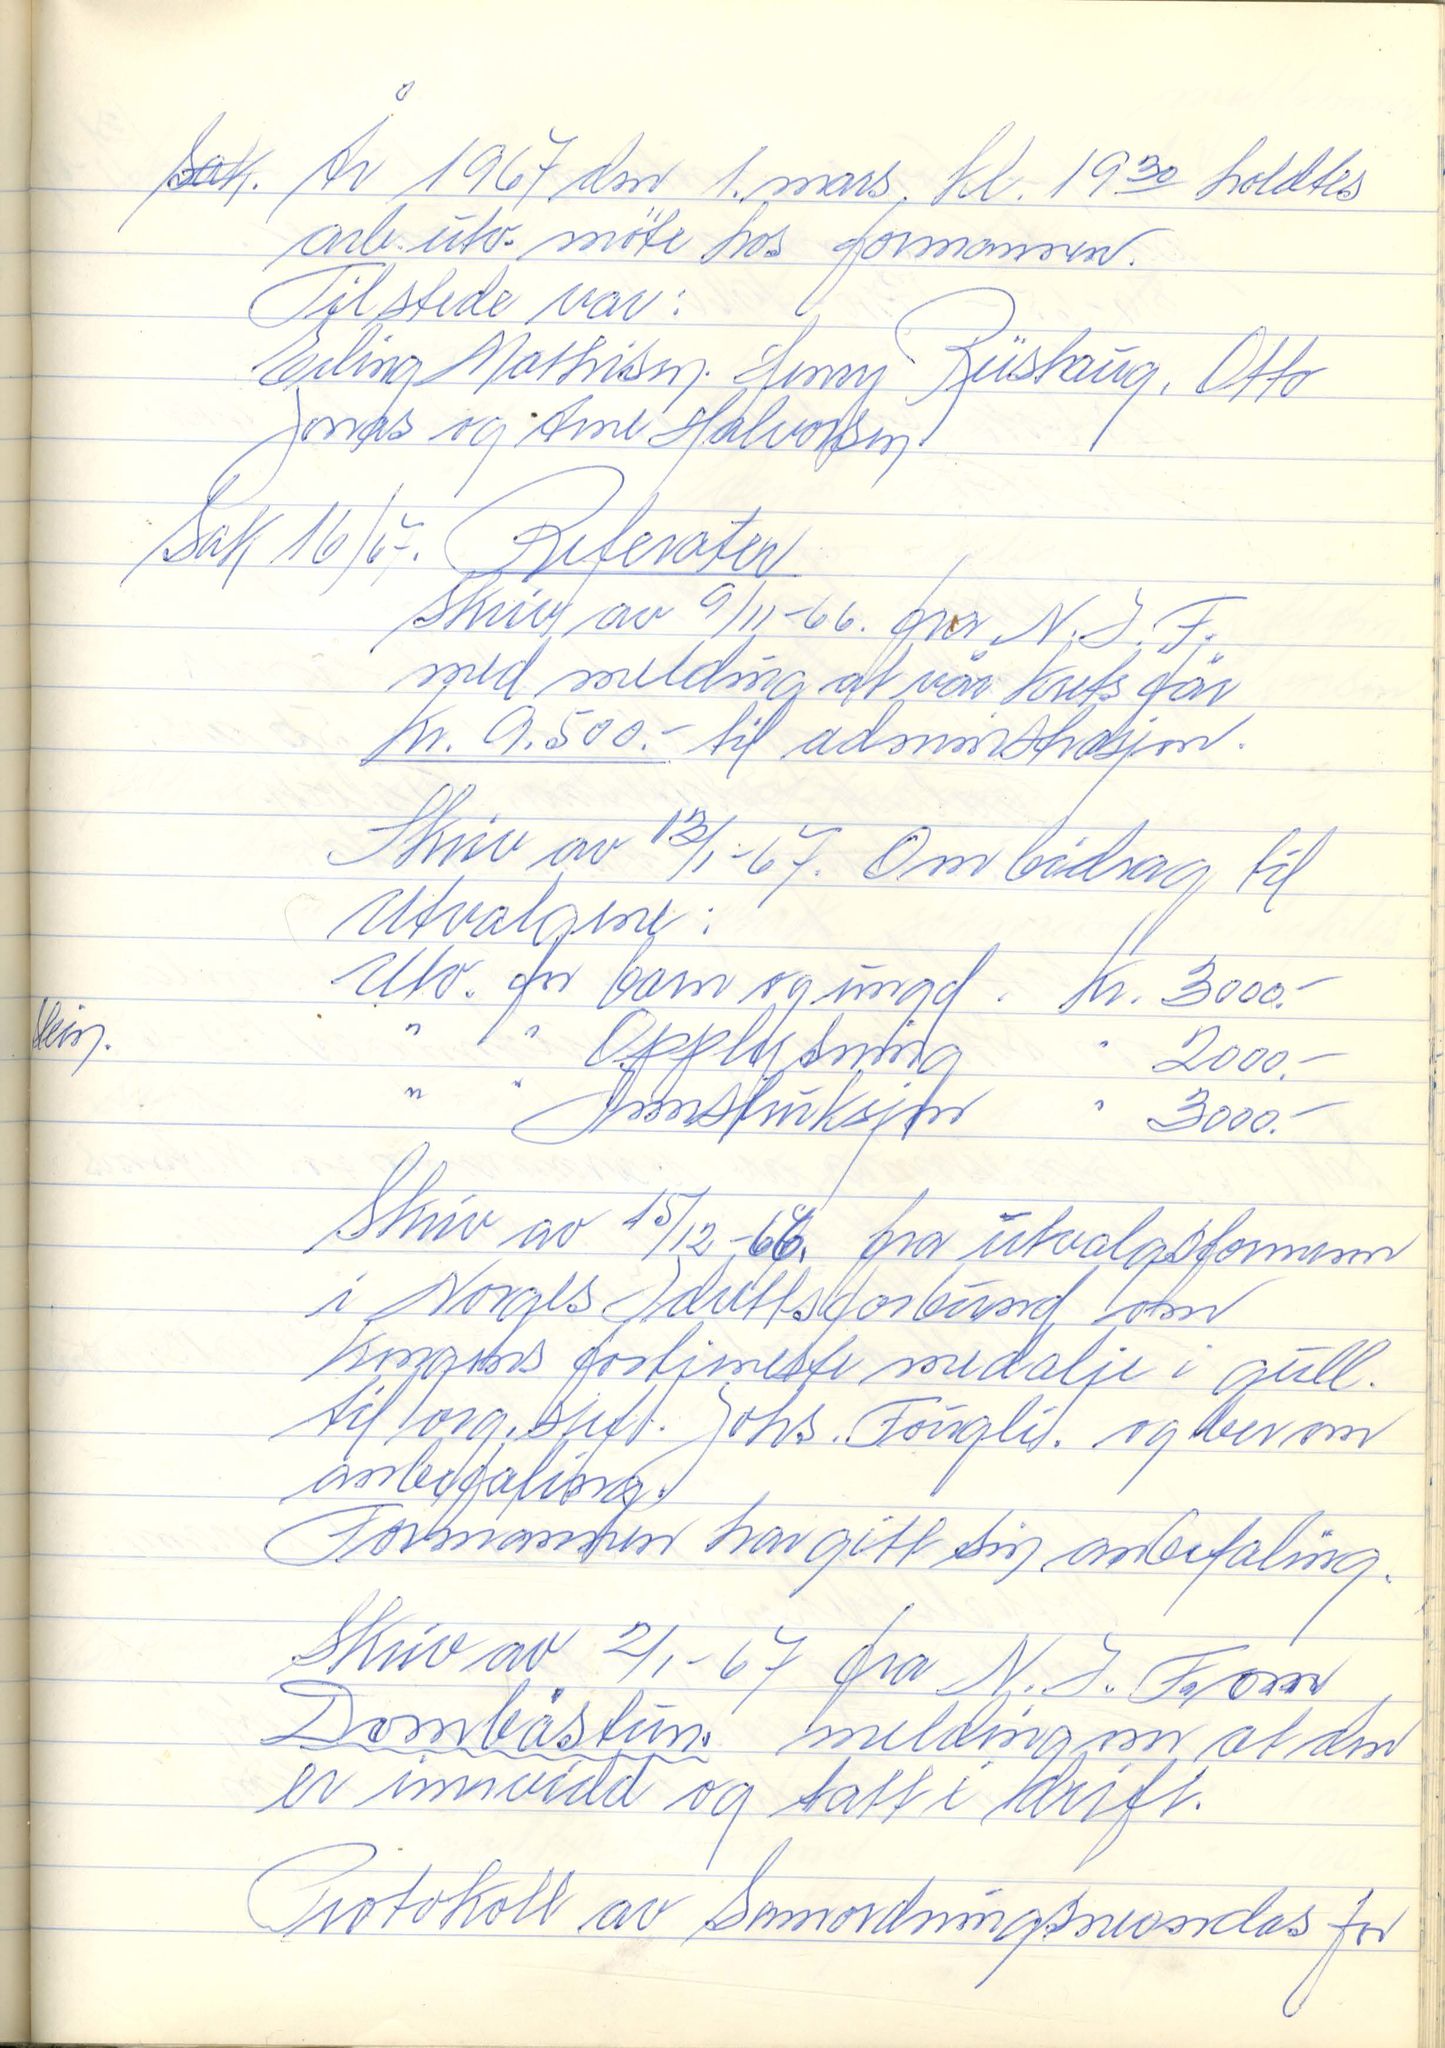 Sak. År 1967 den 1. mars. kl. 19³⁰ holdtes
arb. utv. möte hos formannen.
Tilstede var:
Erling Mathisen. Henry Rüshaug, Otto
Jonas og Arne Halvorsen.
Sak 16/67. Referater
Skriv av 9/11-66. fra N.I.F.
med melding at vår krets får
kr. 9.500.- til administrasjon.
Skriv av 13/1-67. Om bidrag til
Utvalgene:
Utv. for barn og ungd. kr. 3000.-
" " Opplysning " 2000.-
" " Innstruksjon " 3000.-
Skriv av 15/12-66. fra utvalgsformann
i Norges Idrettsforbund om
Kongens fortjeneste medalje i gull.
til org. sjef. Johs. og ber om
anbefaling.
Formannen har gitt sin anbefaling.
Skriv av 2/1-67 fra N.I.F. om
Dombåstun. melding om at den
er innvidd og tatt i drift.
Protokoll av Samordningsnevndas for